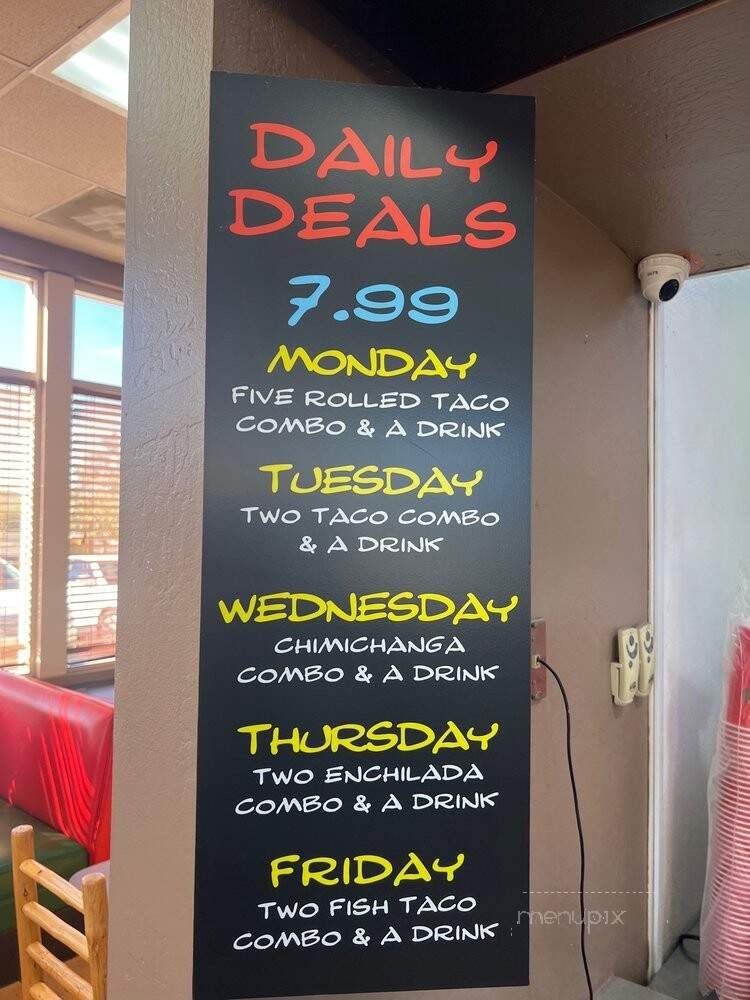 DAILY
DEALS
7.99
MONDAY
FIVE ROLLED TACO
COMBO & A DRINK
TUESDAY
TWO TACO COMBO
& A DRINK
WEDNESDAY
CHIMICHANGA
COMBO & A DRINK
THURSDAY
TWO ENCHILADA
COMBO & A DRINK
FRIDAY
TWO FISH TACO
COMBO & A DRINK
menupix